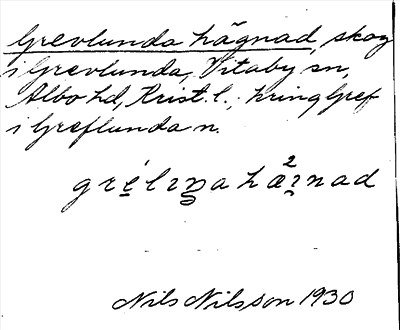 Grevlunda hägnad, skog
i Grevlunda, Vitaby sn,
Albo hd, Krist. l.; kring Gref
i Greflunda n.
Nils Nilsson 1930